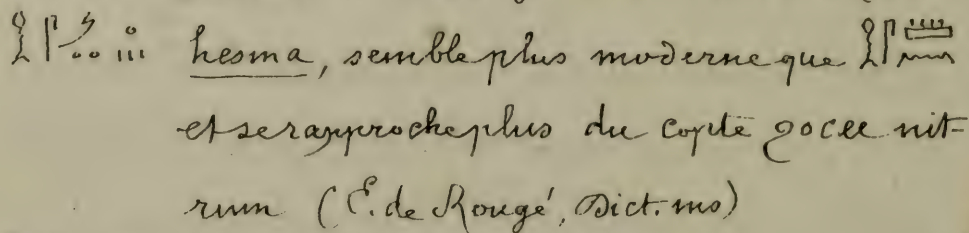 hesma, semble plus moderne que
et se rapproche plus du copte ϩⲟⲥⲙ nit-
rum (E. de Rougé, Dict. ms)